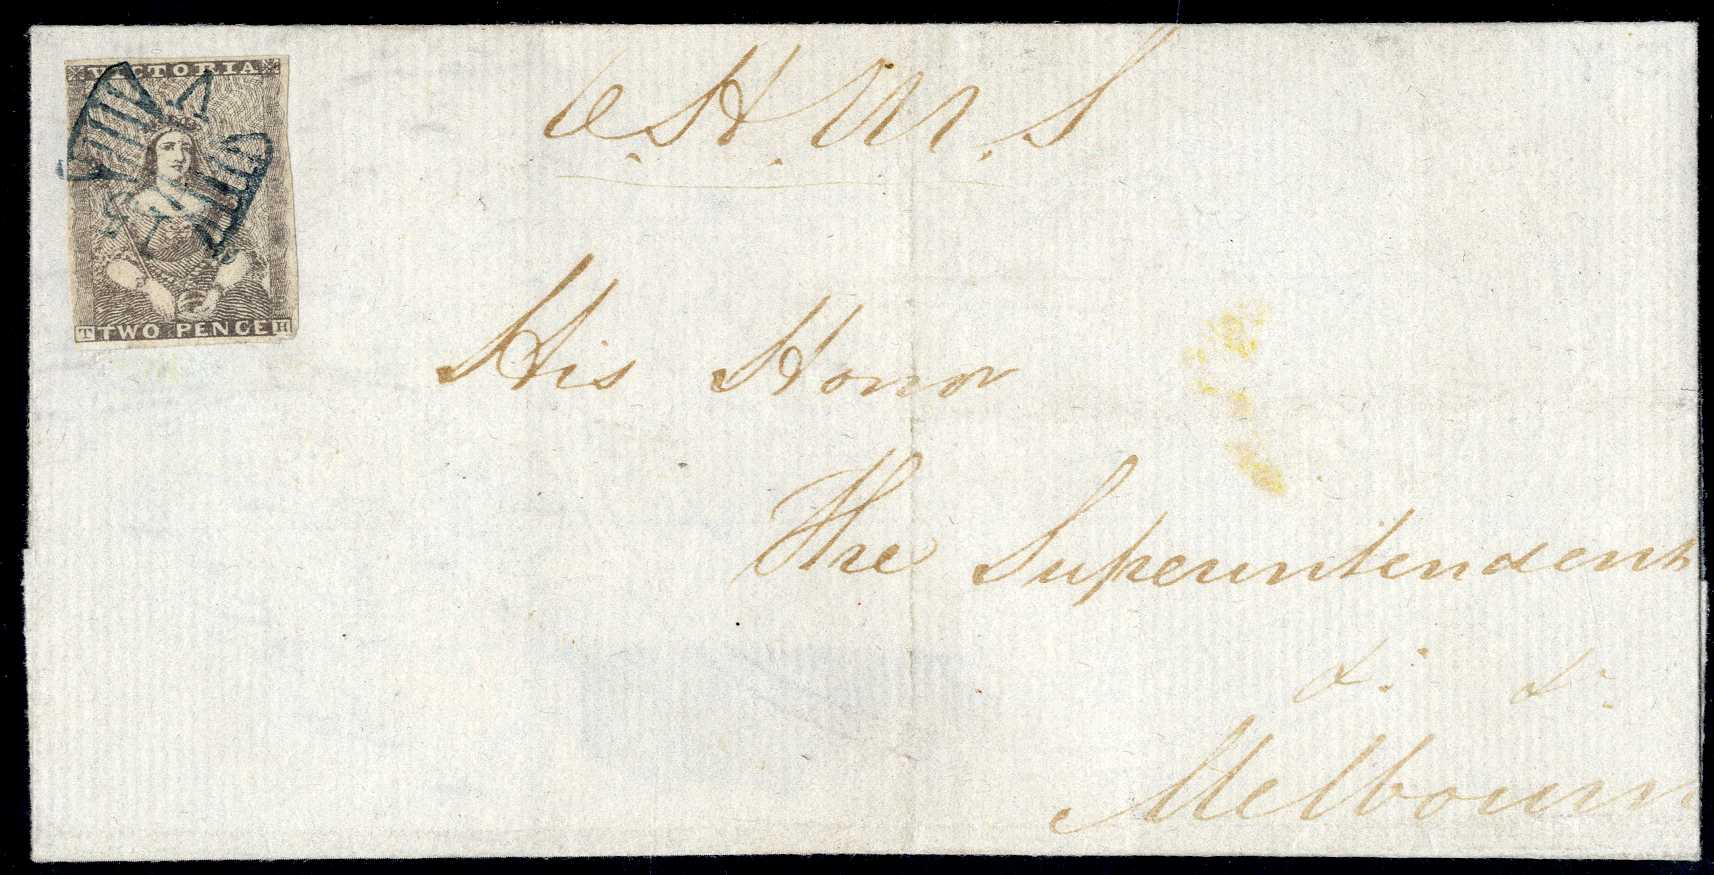 VICTORIA
T TWO PENCE H
O.H.M.S
His Honor
The Superintendent
&. &.
Melbourn